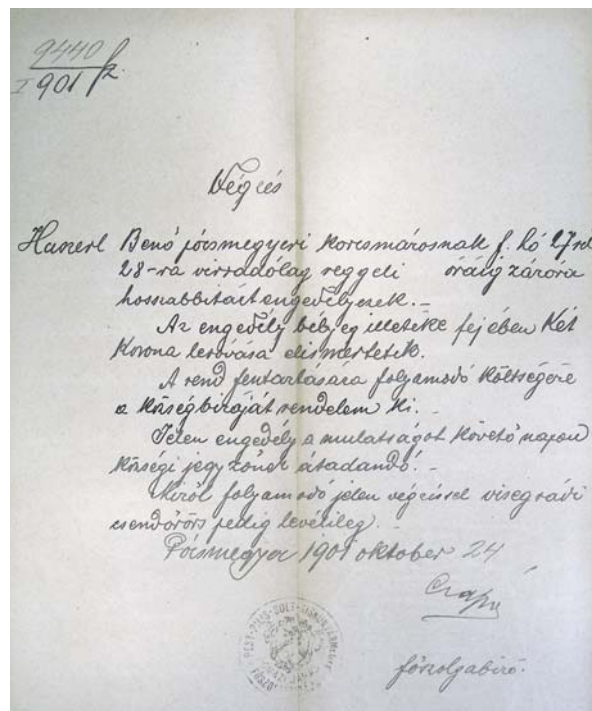 9440
I 901 fz.
Végzés
Haszerl Benő pócsmegyeri korcsmárosnak f. hó 27 ről
28-ra virradólag reggeli óráig záróra
hosszabbitást engedélyezek.-
Az engedély bélyeg illetéke fejében Két
Korona lerovása elismertetik.
A rend fentartására folyamodó költségére
a község biráját rendelem ki.-
Jelen engedély a mulatságot követő napon
községi jegyzőnek átadandó.-
Miről folyamodó jelen végzéssel visegrádi
csendőrörs pedig levélileg.-
Pócsmegyer 1901 oktober 24
főszolgabiró.
PEST-PILIS-SOLT-KISKUN